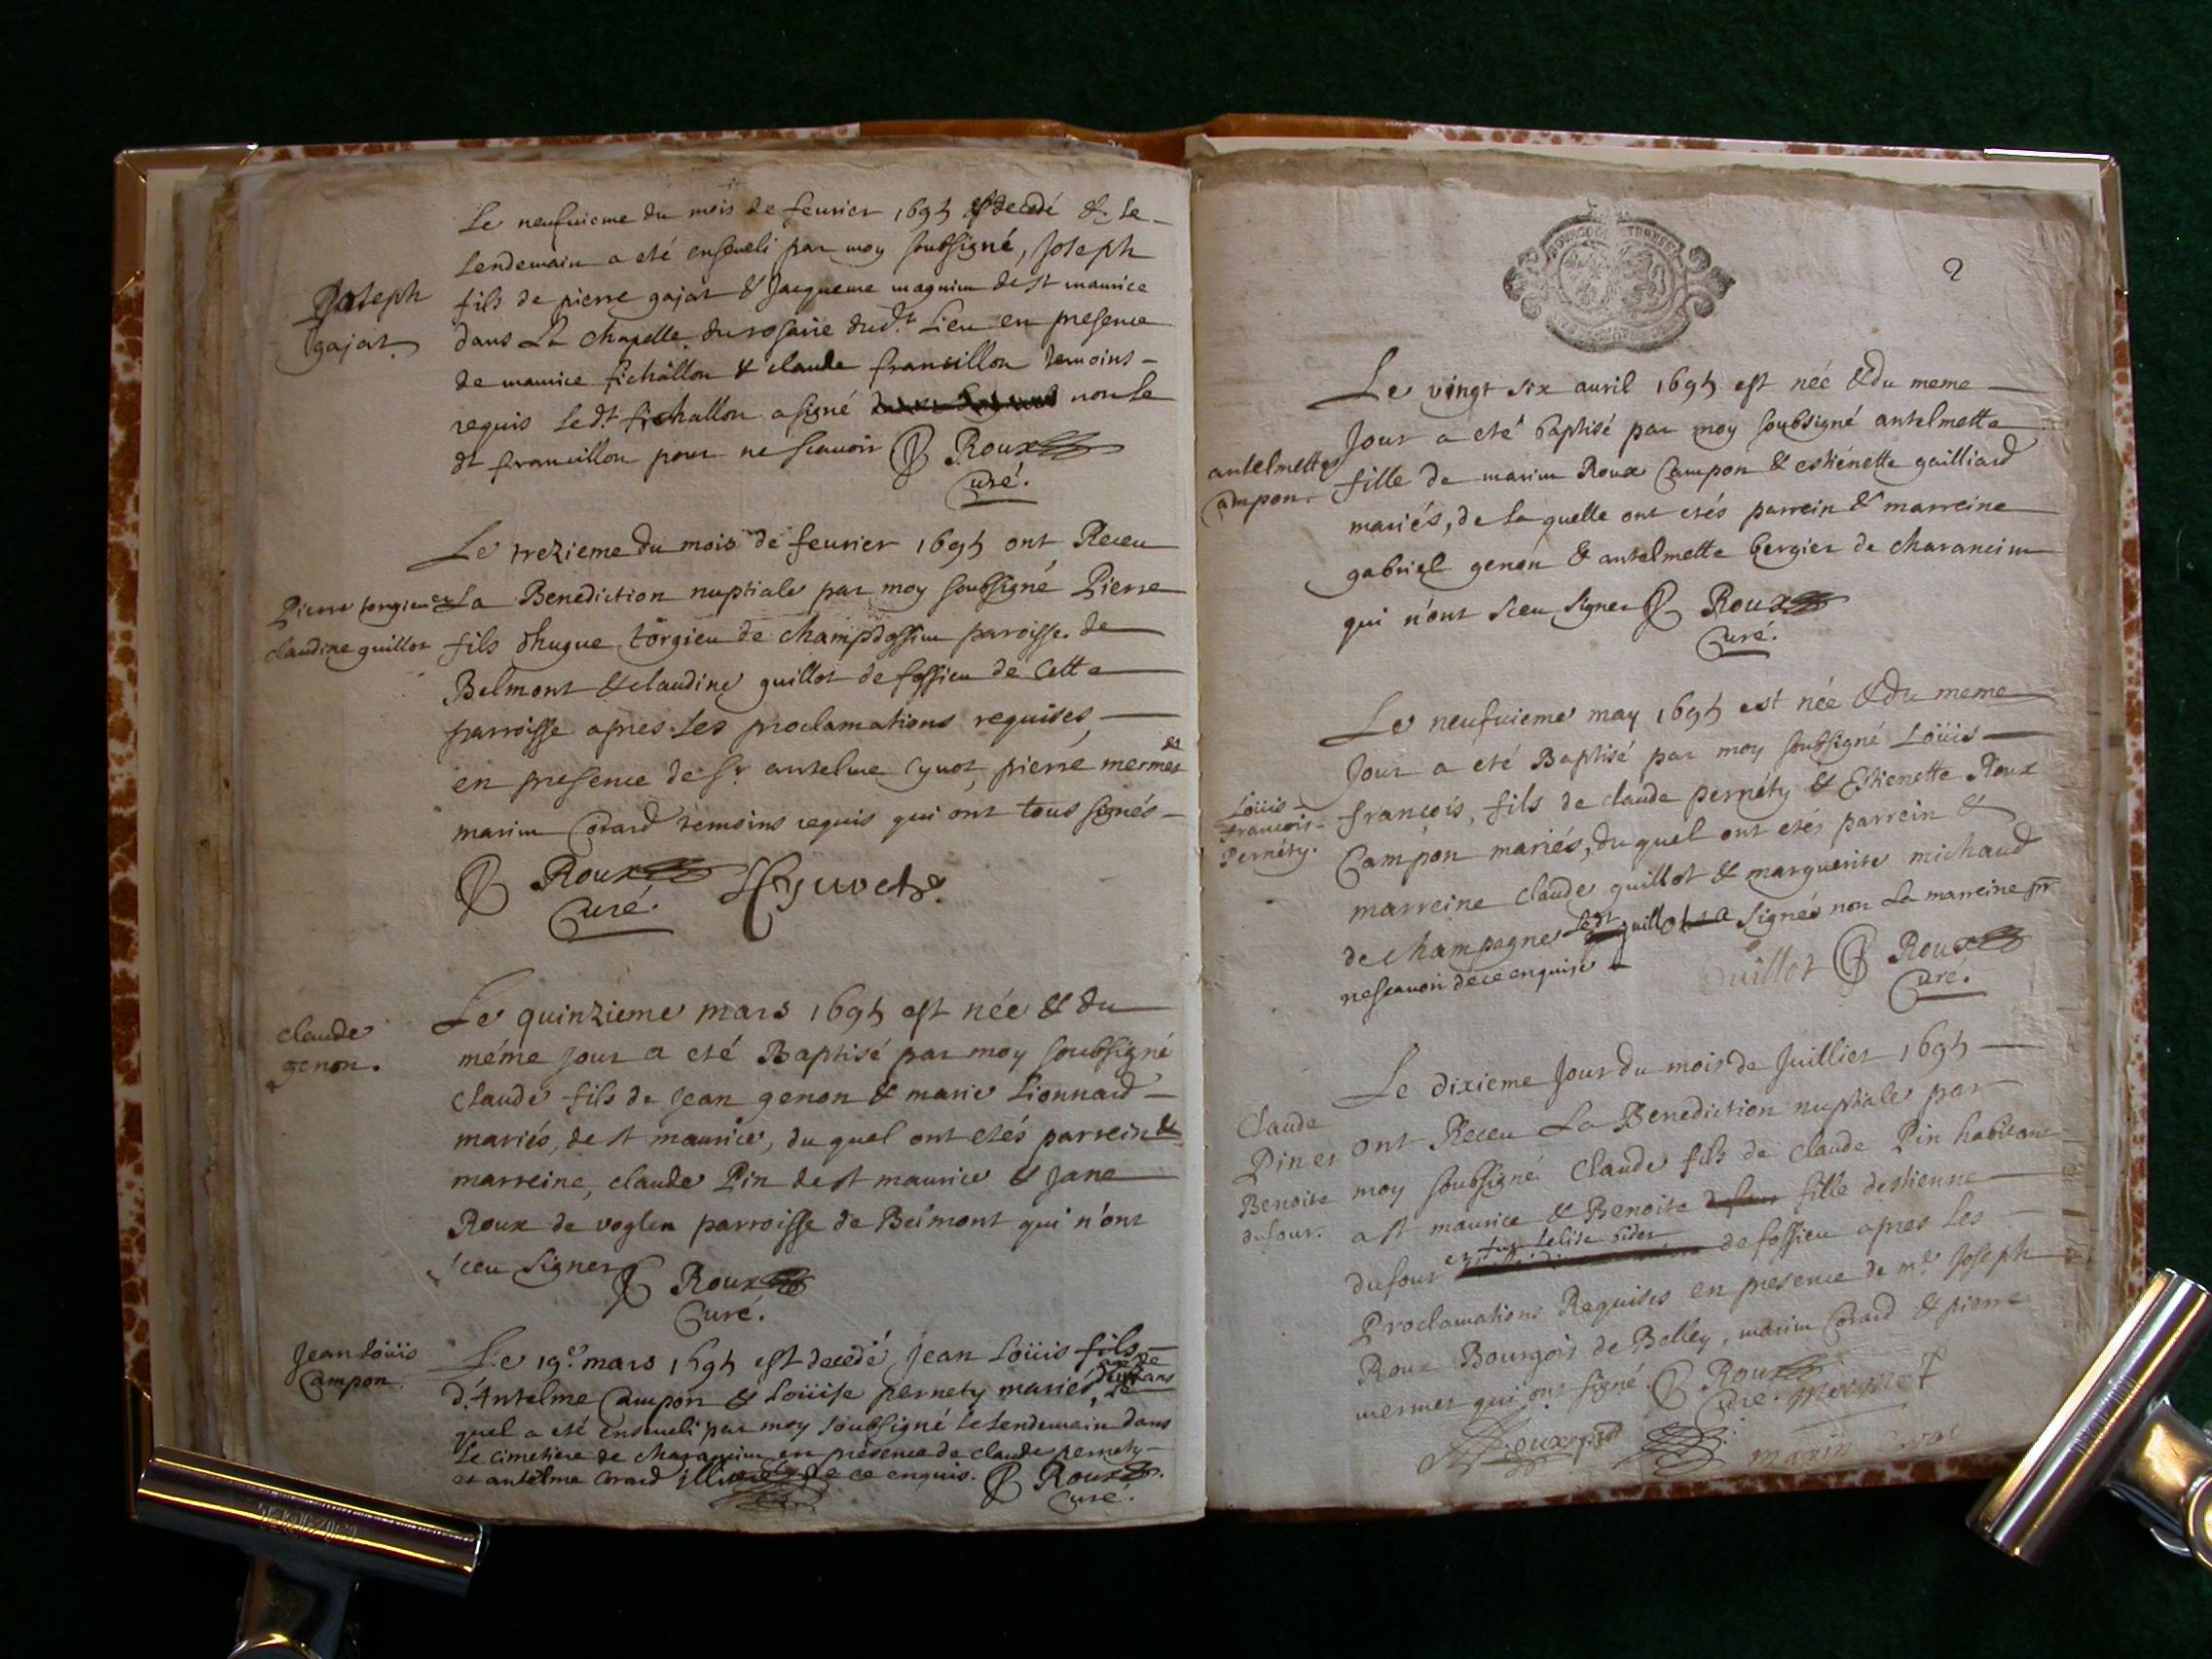 Le neufuieme du mois de feurier 1695 est decedé & le
Lendemain a eté enseueli par moy soubsigné, Joseph
Joseph
gajat
fils de pierre gajat & Jaqueme magnin de st maurice
dans La chapelle du rosaire dud.t Lieu en presence
de maurice fichallon & claude franuillon temoins
requis le d.t fichallon a signé non le
dt franuillon pour ne scauoir Roux
Curé.
Le trezieme du mois de feurier 1695 ont Receu
Pierre torgieu et
claudine guillot
La Benediction nuptiale par moy soubsigné Pierre
fils d'hugue torgieu de champdossin paroisse de
Belmont & claudine guillot de fossieu de Cette
parroisse apres Les proclamations requises
en presence de sr antelme Cyuot, pierre mermet &
marin Corard temoins requis qui ont tous signés
Roux
Curé.
Claude
genon.
Le quinzieme mars 1695 est née & du
méme jour a eté Baptisé par moy soubsigné
Claude fils de jean genon & marie Lionnard
mariés, de st maurice, du quel ont etés parrein &
marreine, claude Pin de st maurice & Jane
Roux de voglen parroisse de Belmont qui n'ont
sceu signer Roux
Curé.
Jean Loüis
Campon.
Le 19e mars 1695 est decedé Jean Loüis fils
d'Antelme Campon & Loüise pernety mariés, le
quel a eté enseueli par moy soubsigné le Lendemain dans
Le cimetiere de charancin en présence de claude pernety
et antelme Corard de ce enquis. Roux
Curé.
2
Le vingt six auril 1695 est née & du meme
Jour a eté Baptisé par moy soubsigné antelmette
antelmette
Campon.
fille de marin Roux Campon & estiénette gailliard
mariés, de la quelle ont etés parrein & marreine
gabriel genon & antelmette Bergier de charancin
qui n'ont sceu signer Roux
Curé.
Le neufuieme may 1695 est née & du meme
Jour a eté Baptisé par moy soubsigné Loüis
Loüis
francois
Pernéty.
francois, fils de claude pernéty & Estienette Roux
Campon mariés, du quel ont etés parrein &
marreine claude guillot & marguerite michaud
de champagne Ledt guillot a signé non La marreine pr
ne scauoir de ce enquise
Guillot Roux
Curé.
Le dixieme Jour du mois de Juillier 1695
Claude
Pin et
Benoite
dufour.
ont Receu La Benediction nuptiale par
moy soubsigné Claude fils de claude Pin habitant
a st maurice & Benoite fille destienne
dufour de fossieu apres Les
Proclamations Requises en presence de mr Joseph
Roux Bourgois de Belley, marin Corard & pierre
mermet qui ont signé. Roux
Curé. Mermet
Roux
marin